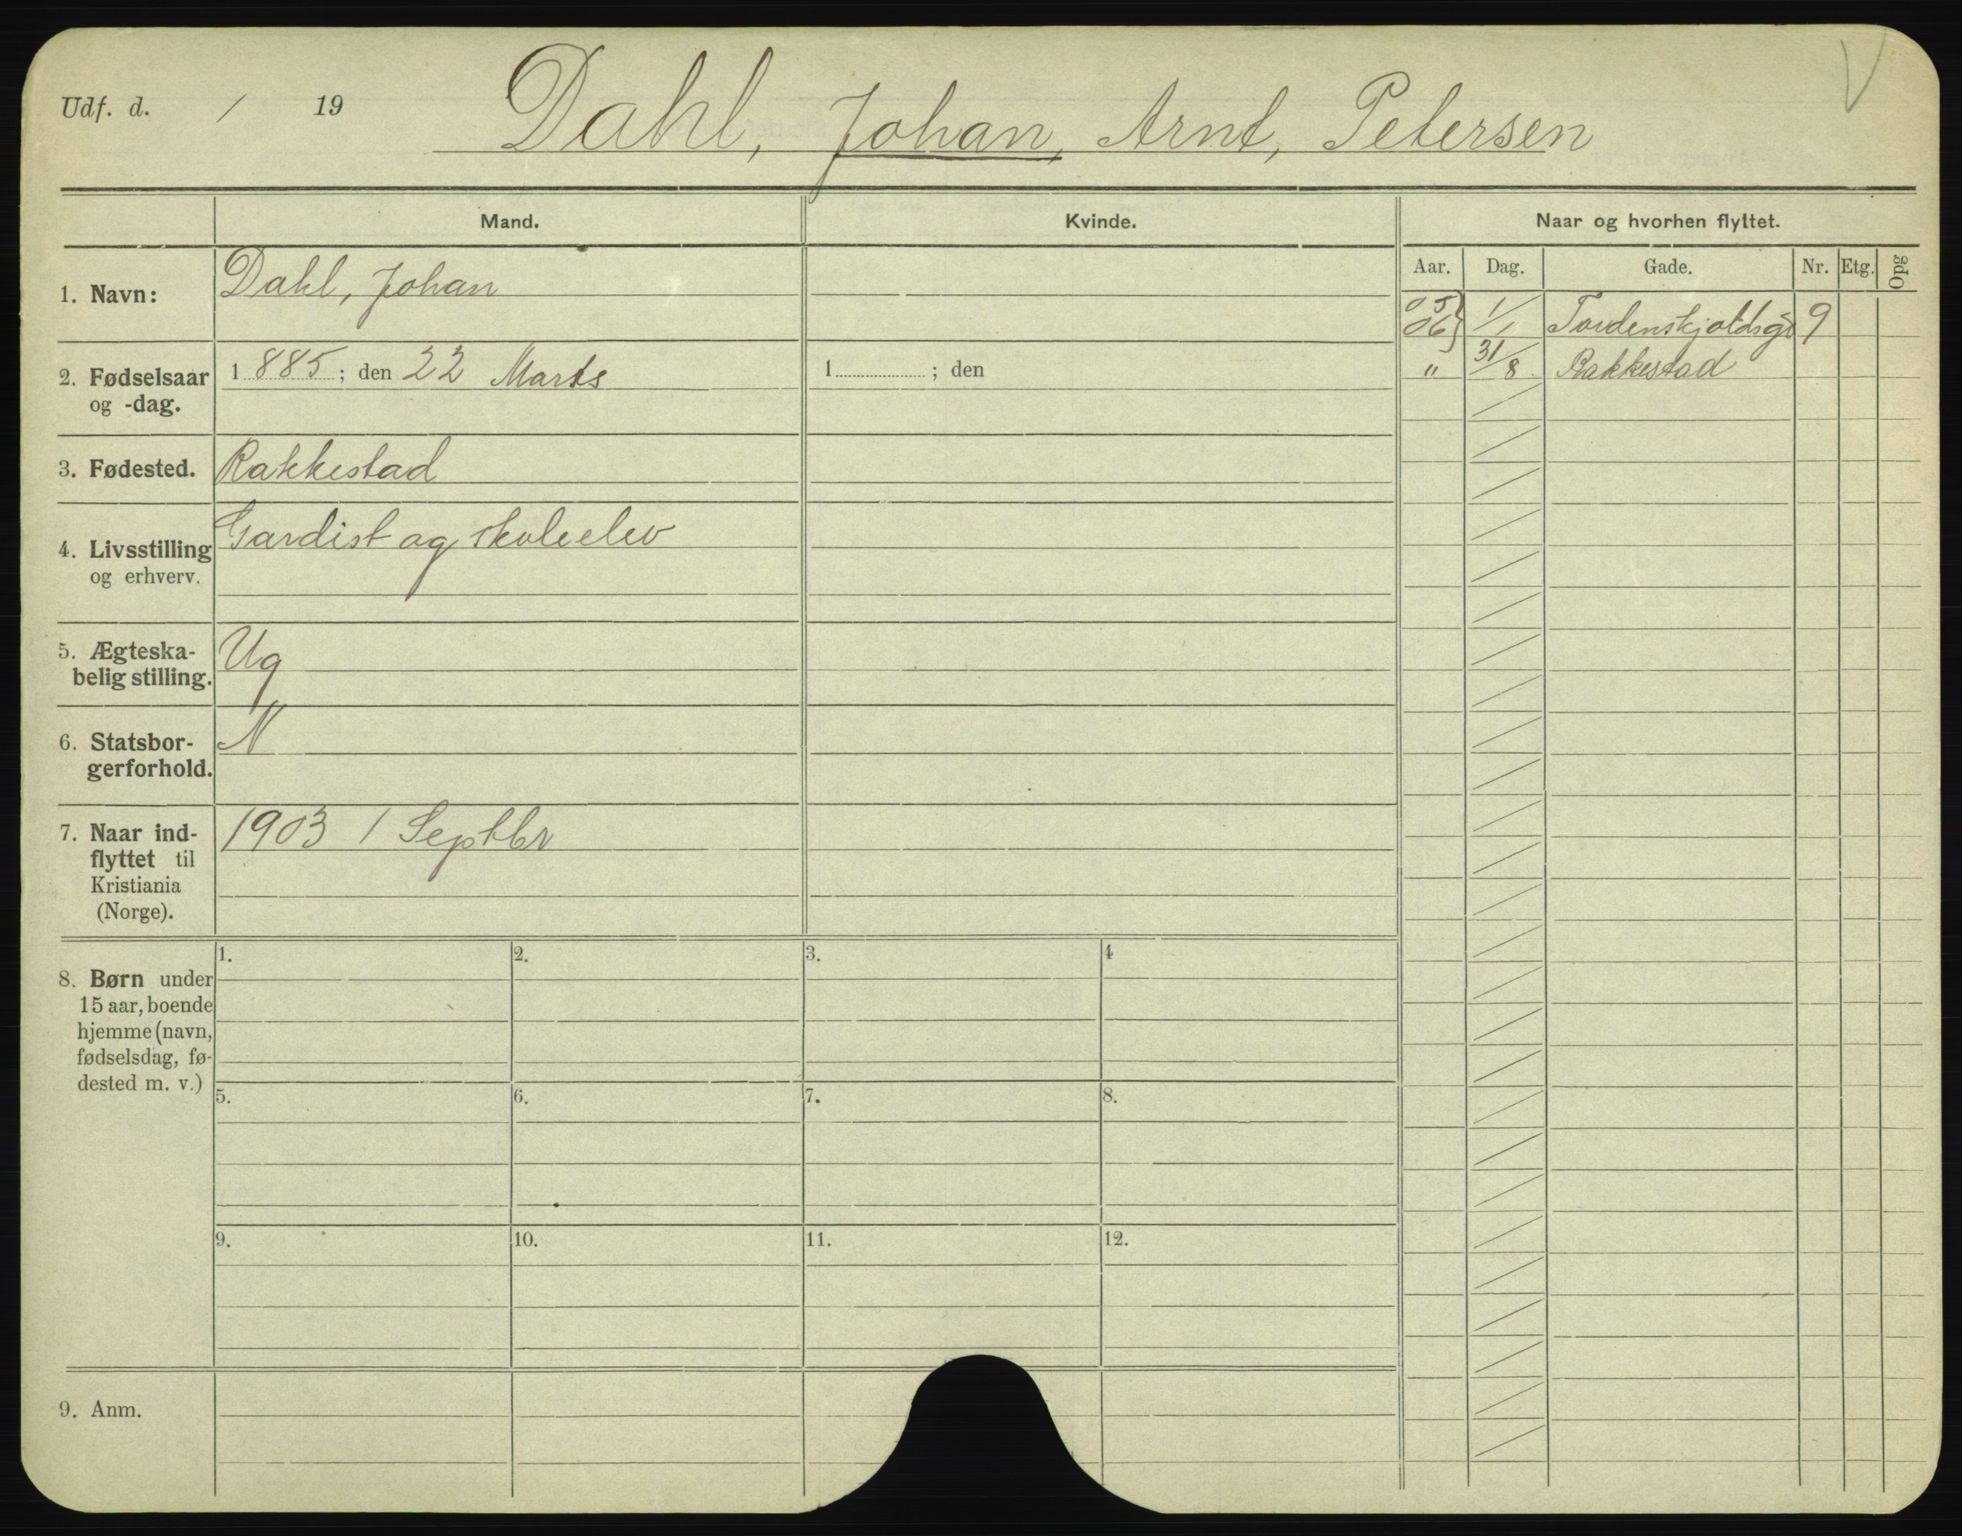 Udf. d. / 19 Dahl, Johan, Arnt, Petersen V
Mand. Kvinde. Naar og hvorhen flyttet.
Aar. Dag. Gade. Nr. Etg. Opg
1. Navn: Dahl, Johan
05 } 1/1 Tordenskjoldsgd 9
06
2. Fødselsaar 1885; den 22 Marts 1 ; den
og -dag.
" 31/8 Rakkestad
3. Fødested. Rakkestad
4. Livsstilling Gardist og skoleelev
og erhverv.
5. Ægteska- Ug
belig stilling.
6. Statsbor- N
gerforhold.
7. Naar ind- 1903 1 Septbr
flyttet til
Kristiania
(Norge).
8. Børn under
15 aar, boende
hjemme (navn,
fødselsdag, fø-
dested m. v.)
1. 2. 3. 4
5. 6. 7. 8.
9. 10. 11. 12.
9. Anm.